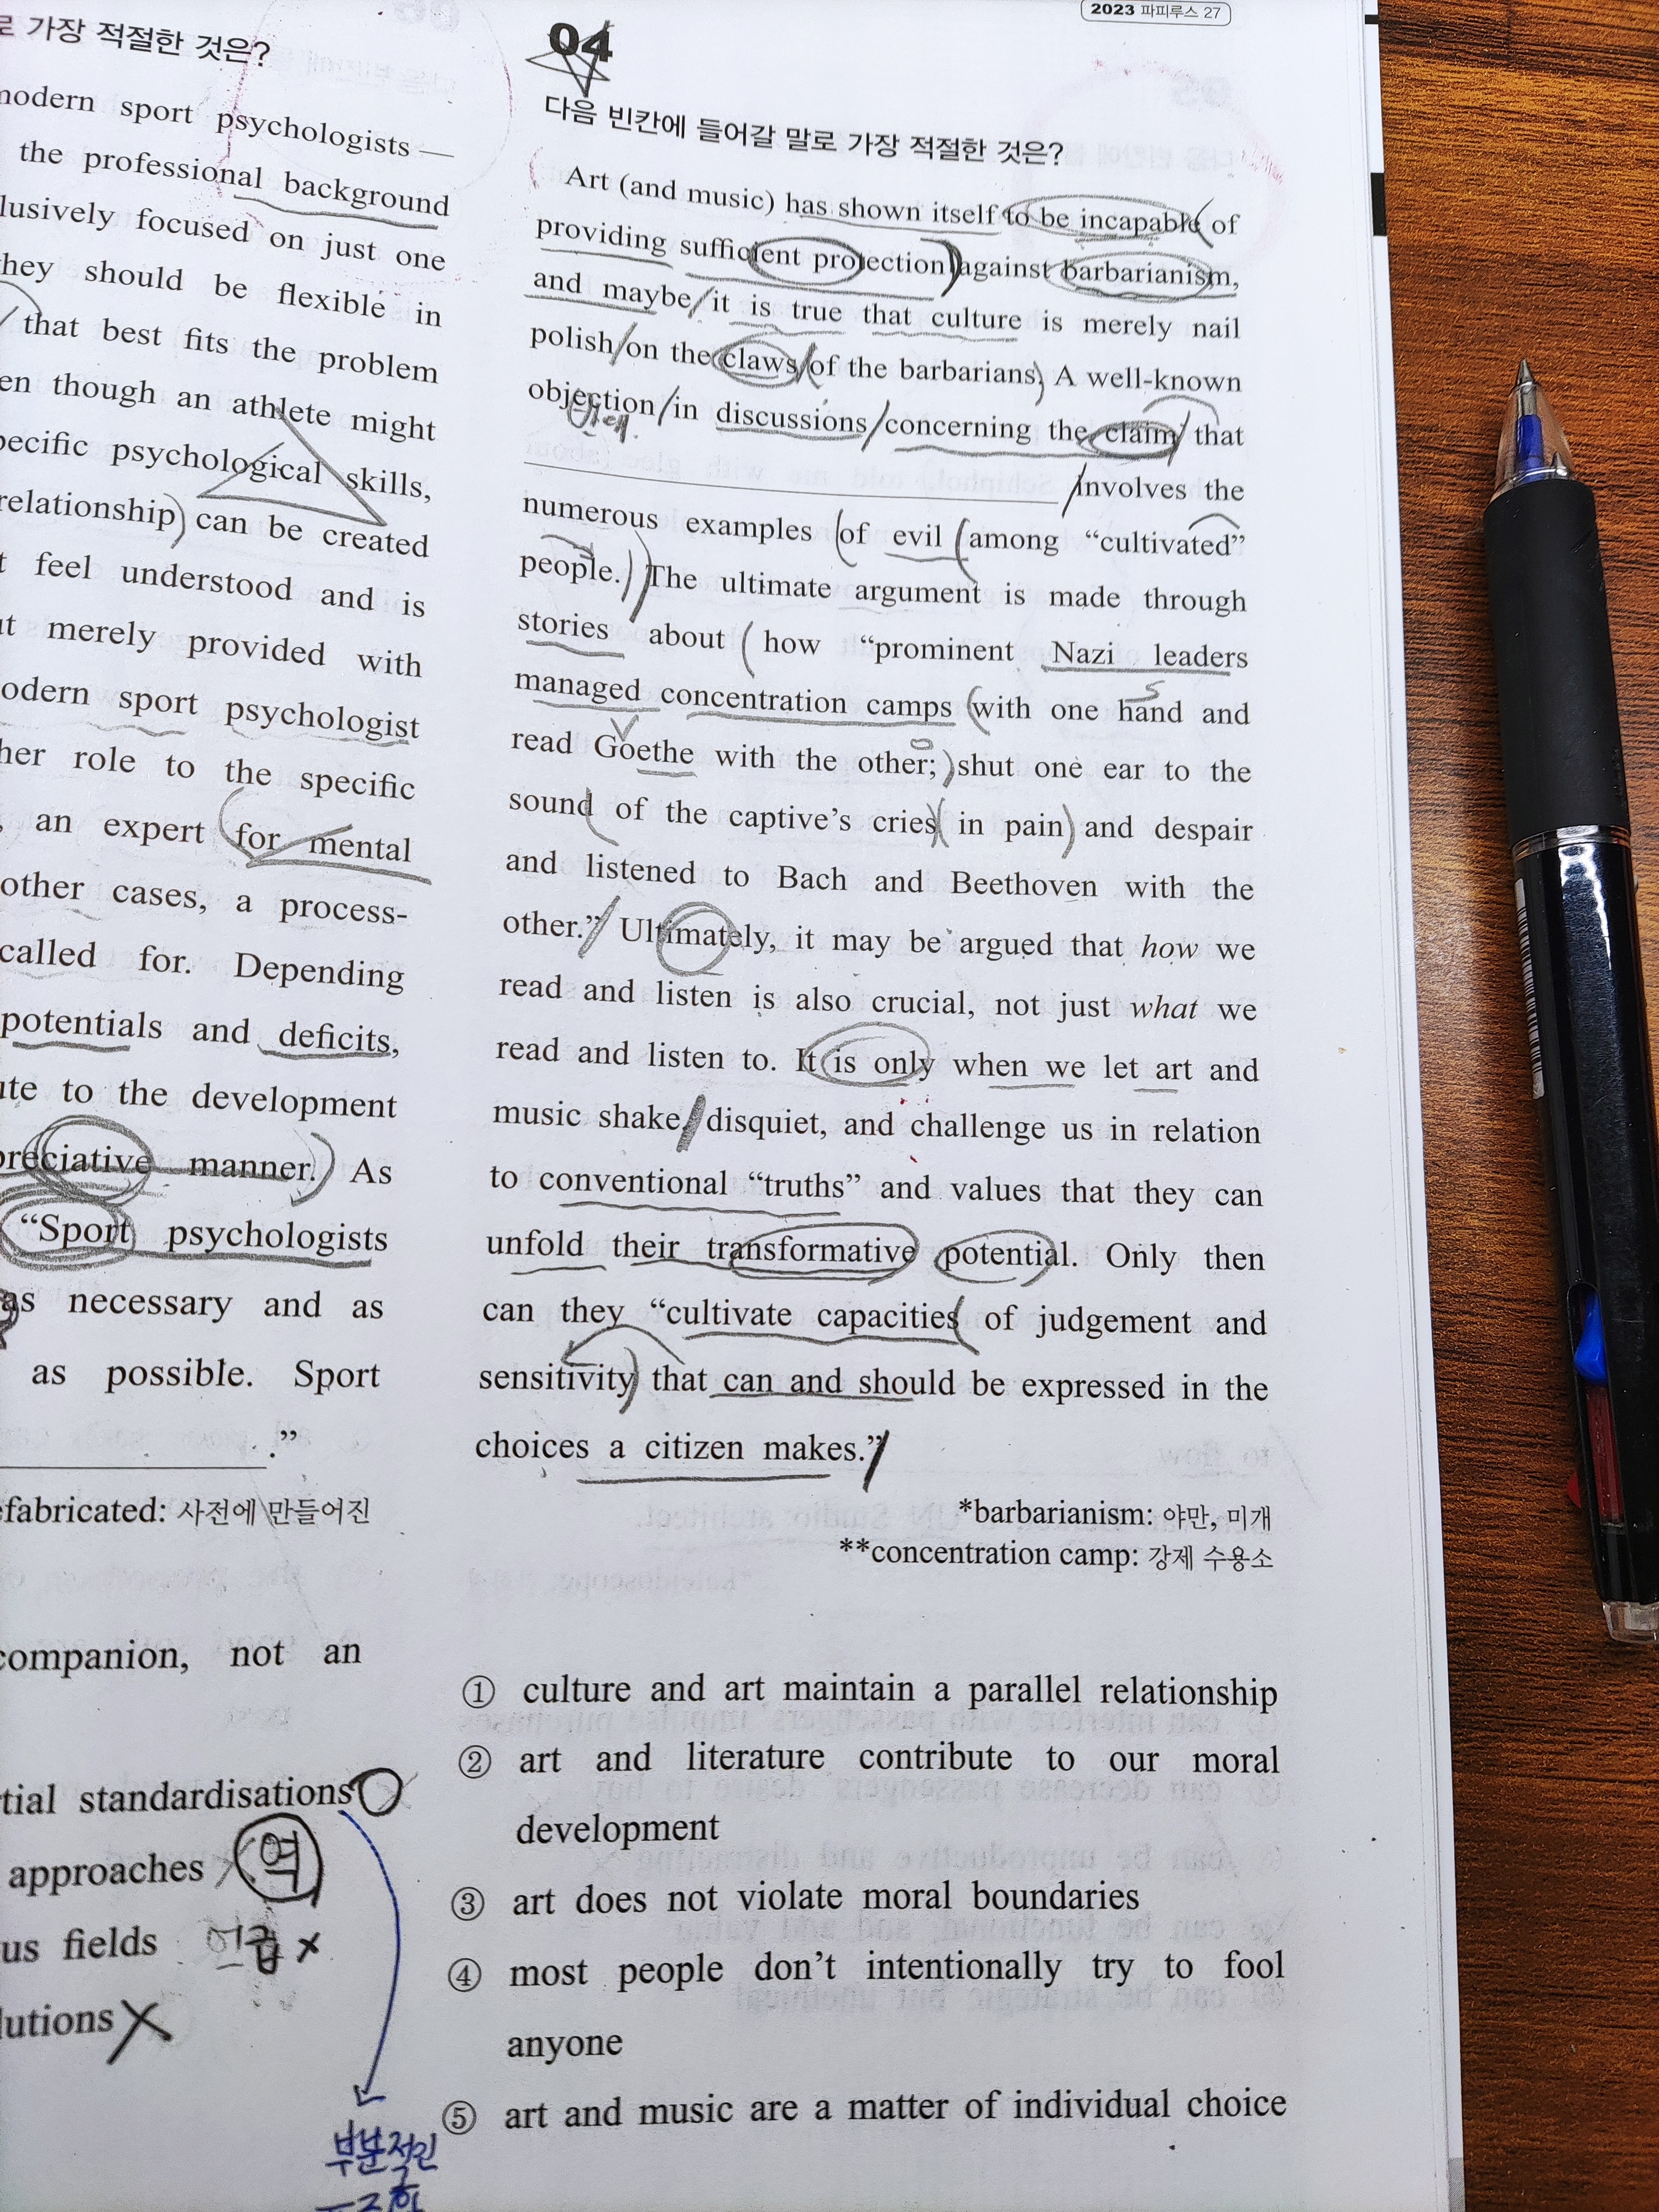 로 가장 적절한 것은?
modern sport psychologists —
the professional background
focused on just one
they should be flexible in
that best fits the problem
though an athlete might
psychological skills,
relationship) can be created
feel understood and is
merely provided with
sport psychologist
her role to the specific
, an expert for mental
other cases, a process-
called for. Depending
potentials and deficits,
to the development
manner. As
“Sport psychologists
as necessary and as
as possible. Sport
.”
사전에 만들어진
companion, not an
standardisations
approaches 역
fields 언급 X
X
부분적인
2023 파피루스 27
04
다음 빈칸에 들어갈 말로 가장 적절한 것은?
Art (and music) has shown itself to be incapable of
providing sufficient protection against barbarianism,
and maybe it is true that culture is merely nail
polish on the claws of the barbarians. A well-known
objection in discussions concerning the claim that
involves the
numerous examples of evil among “cultivated”
people. The ultimate argument is made through
stories about how “prominent Nazi leaders
managed concentration camps with one hand and
read Goethe with the other; shut one ear to the
sound of the captive’s cries in pain and despair
and listened to Bach and Beethoven with the
other.” Ultimately, it may be argued that how we
read and listen is also crucial, not just what we
read and listen to. It is only when we let art and
music shake, disquiet, and challenge us in relation
to conventional “truths” and values that they can
unfold their transformative potential. Only then
can they “cultivate capacities of judgement and
sensitivity that can and should be expressed in the
choices a citizen makes.”
*barbarianism: 야만, 미개
**concentration camp: 강제 수용소
① culture and art maintain a parallel relationship
② art and literature contribute to our moral
development
③ art does not violate moral boundaries
④ most people don’t intentionally try to fool
anyone
⑤ art and music are a matter of individual choice